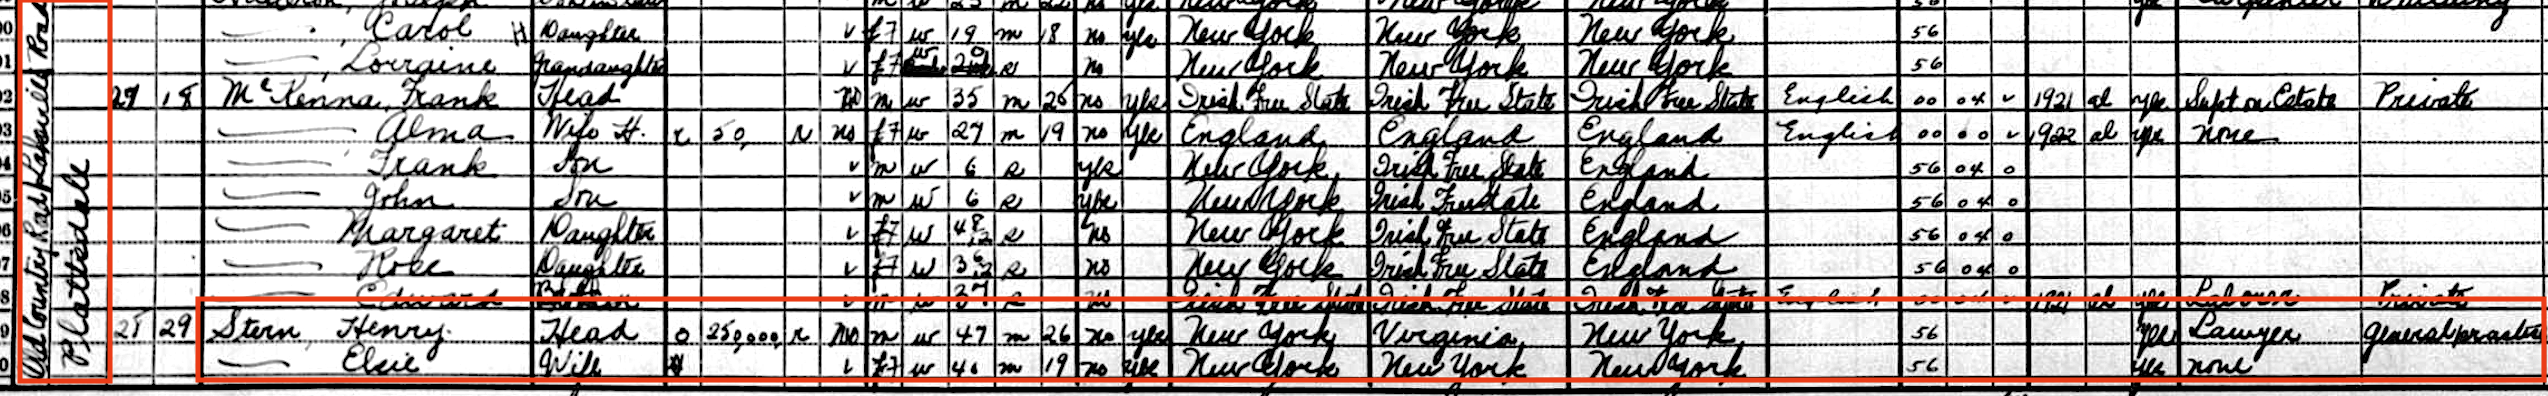 Carol H Daughter v f7 w 19 m 18 no yes New York New York New York 56
Lorraine Grandaughter v f7 w s no New York New York New York 56
27 18 McKenna, Frank Head No m w 35 m 25 no yes Irish Free State Irish Free State Irish Free State English 00 04 v 1921 al yes Supt on Estate Private
Alma Wife H. R 50, R no f7 w 27 m 19 no yes England England England English 00 00 v 1922 al yes none
Frank Son v m w 6 s yes New York Irish Free State England 56 04 0
John Son v m w 6 s yes New York Irish Free State England 56 04 0
Margaret Daughter v f7 w s no New York Irish Free State England 56 04 0
Rose Daughter v f7 w s no New York Irish Free State England 56 04 0
Edward v m w 37 s no Irish Free State Irish Free State Irish Free State English 00 04 v 1921 al yes Labourer Private
29 Stern, Henry Head O 250,000, R No m w 47 m 26 no yes New York Virginia New York 56 yes Lawyer general practice
Elsie Wife H v f7 w m 19 no yes New York New York New York 56 yes none
Old Country Road Road
Plattsdale